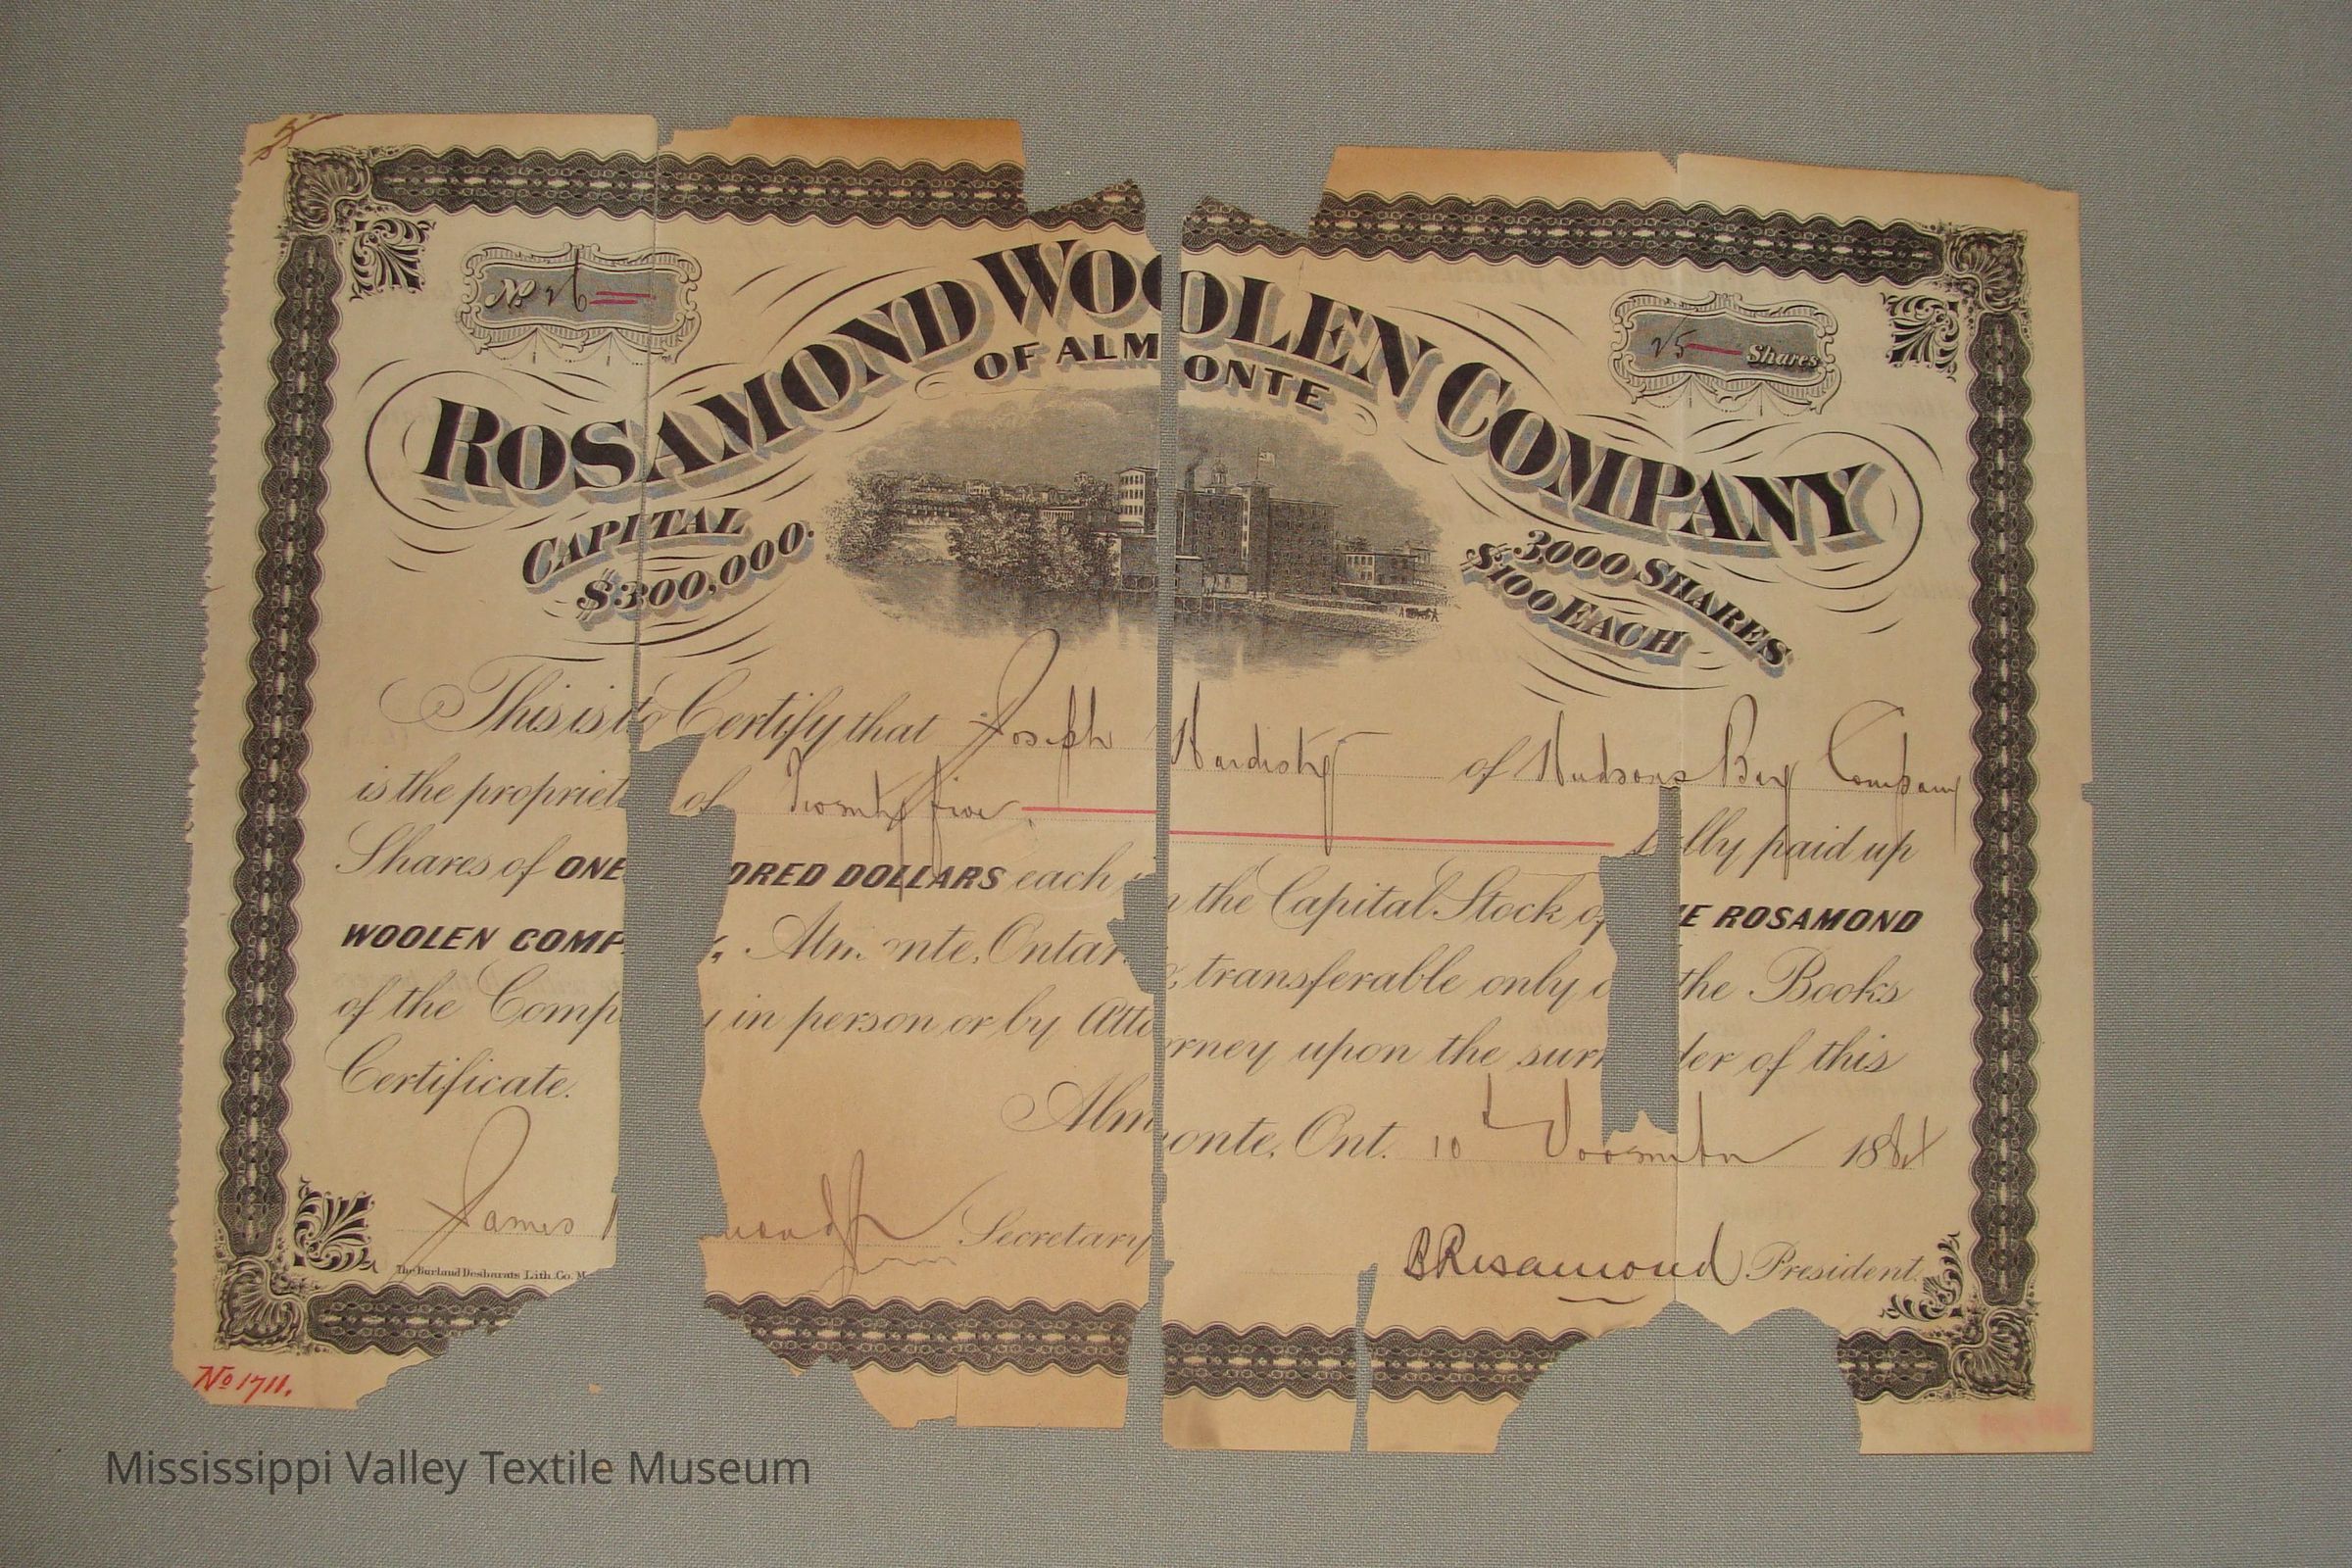 No 26
25 Shares
ROSAMOND WOOLEN COMPANY
OF ALMONTE
CAPITAL
$300,000.
3000 SHARES
$100 EACH
This is to Certify that Joseph Hardisty of Hudsons Bay Company
is the propriet of Twenty five lly paid up
Shares of ONE DRED DOLLARS each in the Capital Stock of E ROSAMOND
WOOLEN COMP , Almonte, Ontar transferable only the Books
of the Comp in person or by Attorney upon the surr der of this
Certificate.
Almonte, Ont. 10 November 188
James Secretary
B Rosamond President.
The Burland Desbarats Lith. Co. M
No 1711.
Mississippi Valley Textile Museum